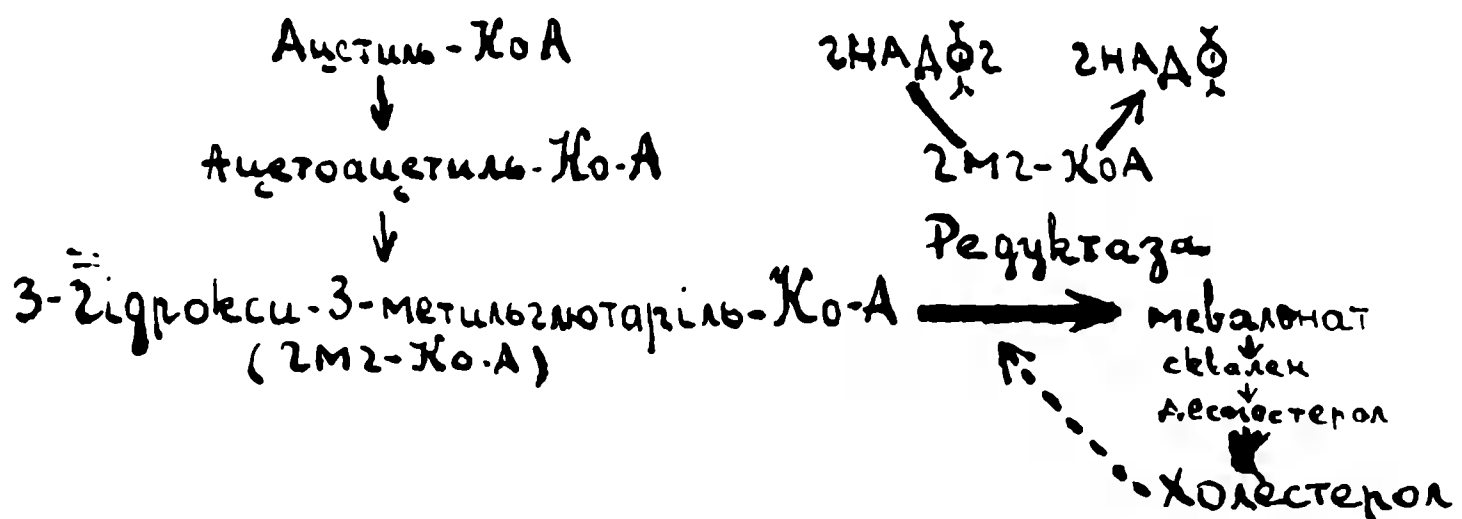 Ацетиль-КоА
Ацетоацетиль-Ко-А
3-гідрокси-3-метильглютаріль-Ко-А
(гмг-Ко-А)
2НАДФг 2НАДФ
гмг-КоА
Редуктаза
мевалонат
сквален
десмостерол
Холестерол